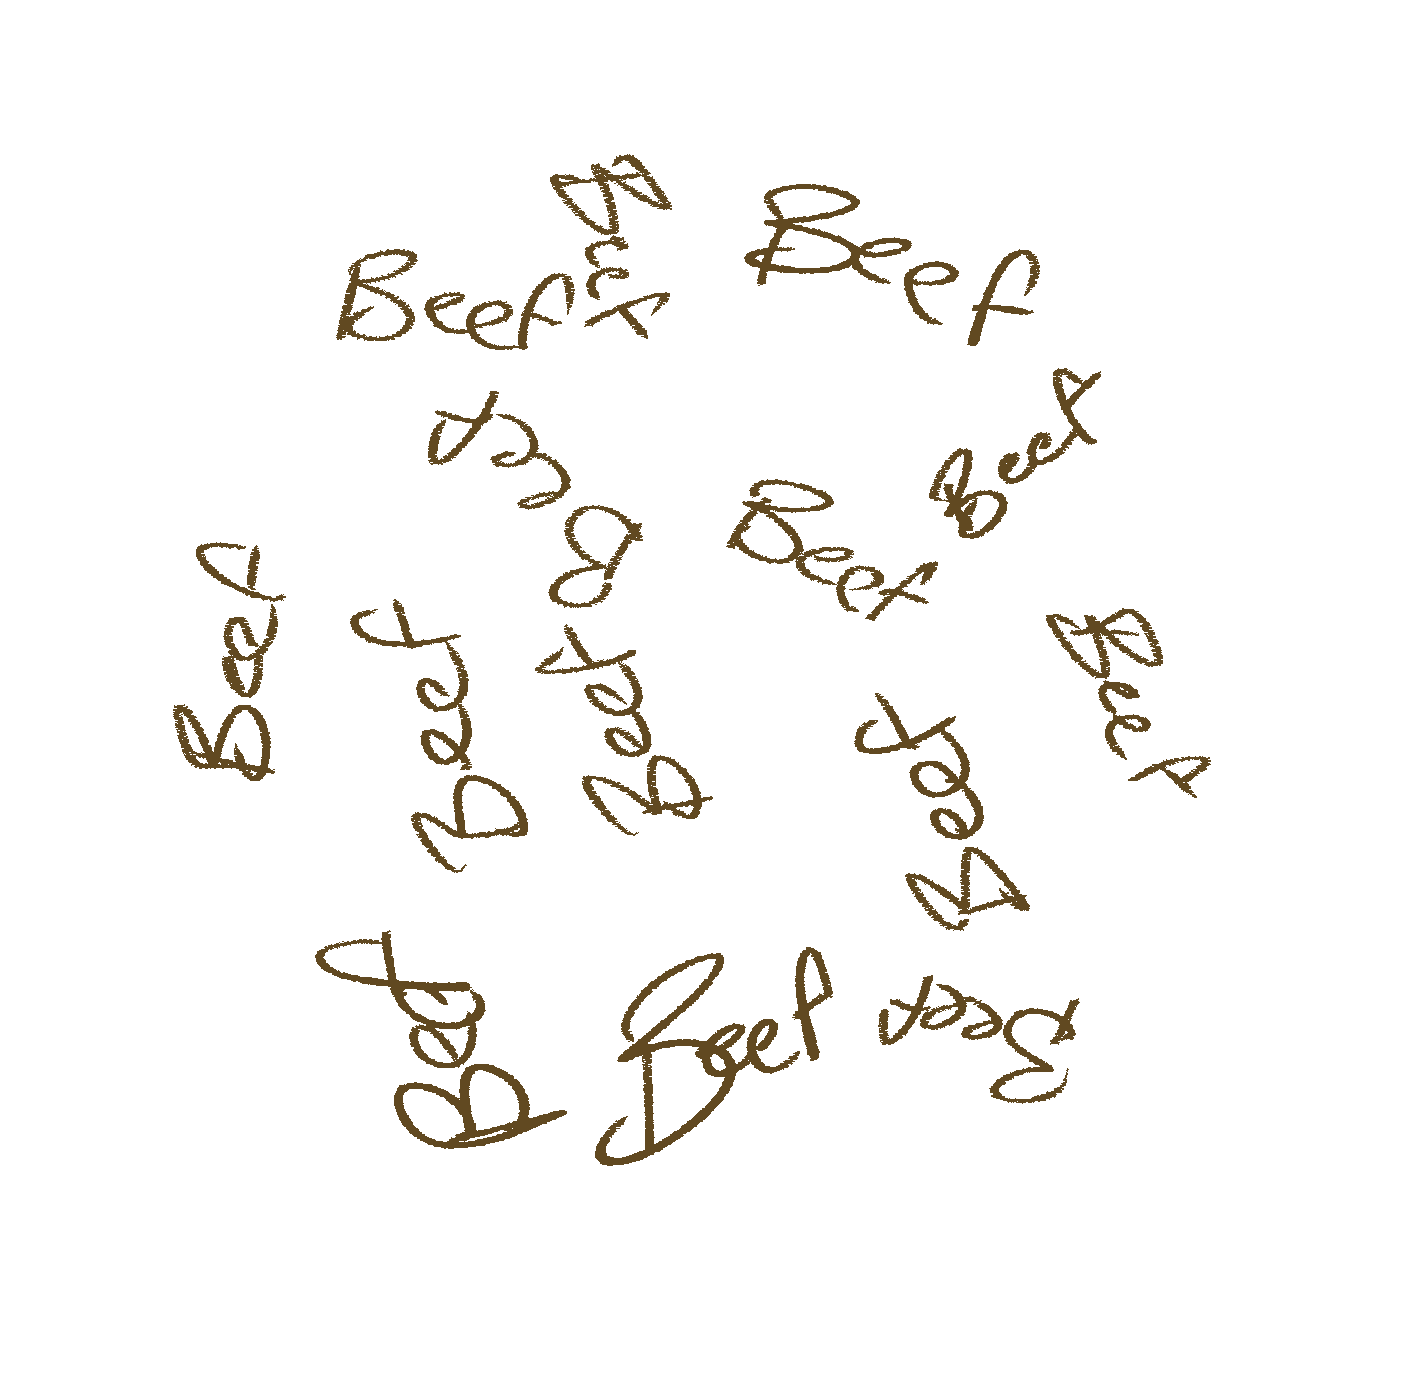 Beef
Beef
Beef
Beef
Beef
Beef
Beef
Beef
Beef
Beef
Beef
Beef
Beef
Beef